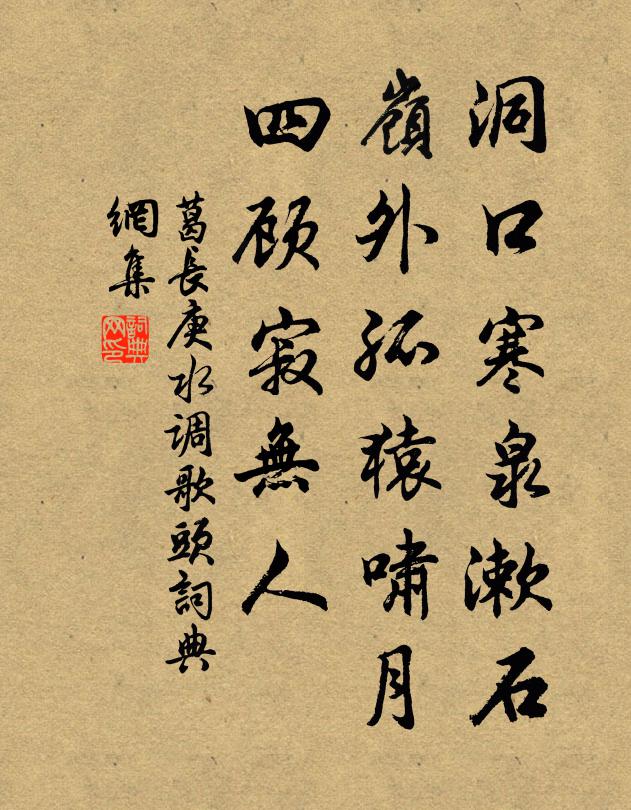 洞口寒泉漱石
嶺外孤猿啸月
四顾寂無人
葛長庚水调歌頭詞典
網集
詞典
网印